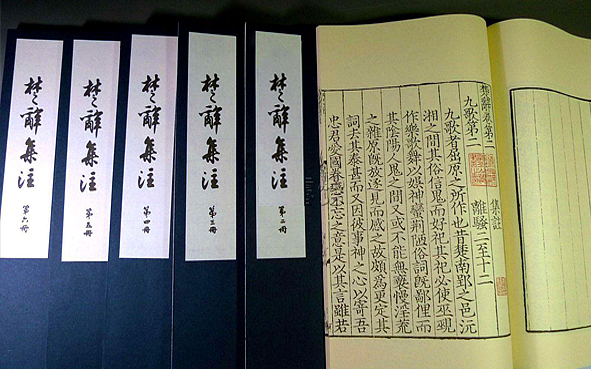 楚辭卷第二
集註
離騷二至十二
九歌第二
九歌者屈原之所作也昔楚南郢之邑沅
湘之間其俗信鬼而好祀其祀必使巫覡
作樂歌舞以娛神蠻荆陋俗詞旣鄙俚而
其陰陽人鬼之間又或不能無褻慢淫荒
之雜原旣放逐見而感之故頗為更定其
詞去其泰甚而又因彼事神之心以寄吾
忠君愛國眷戀不忘之意是以其言雖若
楚辭集注
第二冊
楚辭集注
第三冊
楚辭集注
第四冊
楚辭集注
第五冊
楚辭集注
第六冊